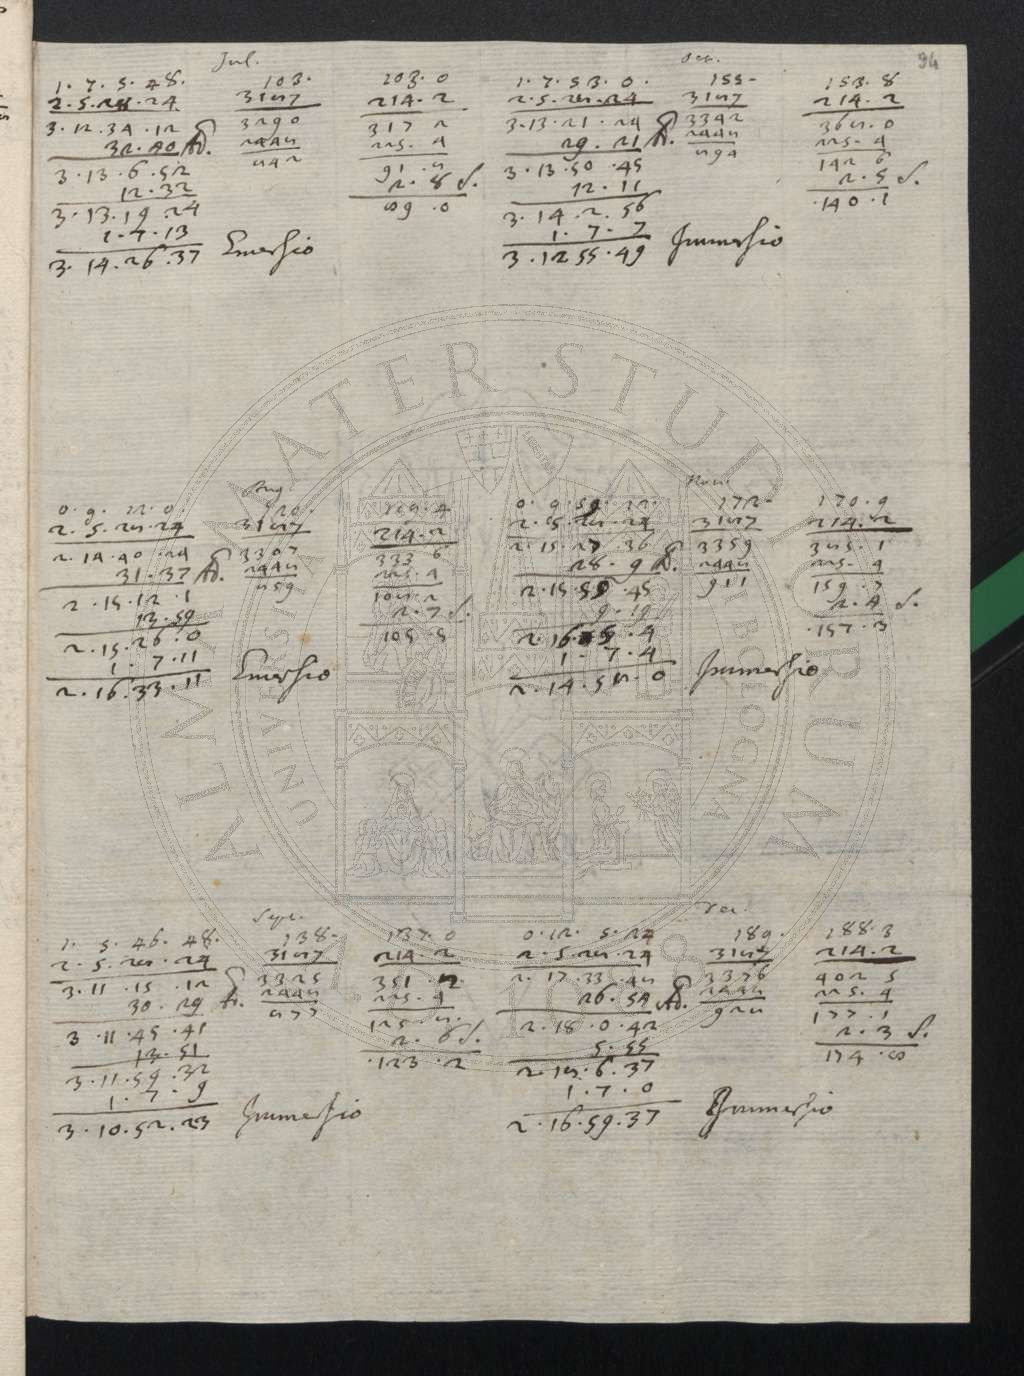 94
Jul.
1. 7. 5. 48.
2. 5. 28. 24
3. 12. 34. 12
32. 40 Ad.
3. 13. 6. 52
12. 32
3. 13. 19. 24
1. 7. 13
3. 14. 26. 37 Emersio
103.
3187
3290
2448
842
103. 0
214. 2
317 2
225. 4
91. 8
2. 8 S.
89. 0
Oct.
1. 7. 53. 0.
2. 5. 28. 24
3. 13. 21. 24
29. 21 Ad.
3. 13. 50. 45
12. 11
3. 14. 2. 56
1. 7. 7
3. 12 55. 49 Immersio
155-
3187
3342
2448
894
153. 8
214. 2
368. 0
225. 4
142 6
2. 5 S.
140. 1
Aug.
0. 9. 12. 0.
2. 5. 28. 24
2. 14. 40. 24
31. 37 Ad.
2. 15. 12. 1
13. 59
2. 15. 26. 0
1. 7. 11
2. 16. 33. 11 Emersio
120.
3187
3307
2448
859
119. 4
214. 2
333 6
225. 4
108. 2
2. 7 S.
105. 5
Nov.
0. 9. 59. 12.
2. 5. 28. 24
2. 15. 27. 36
28. 9 Ad.
2. 15. 55. 45
9. 19
2. 16. 5. 4
1. 7. 4
2. 14. 58. 0 Immersio
172-
3187
3359
2448
911
170. 9
214. 2
385. 1
225. 4
159. 7
2. 4 S.
157. 3
Sept.
1. 5. 46. 48.
2. 5. 28. 24
3. 11. 15. 12
30. 29 Ad.
3 11. 45. 41
13. 51
3. 11. 59. 32
1. 7. 9
3. 10. 52. 23 Immersio
138-
3187
3325
2448
877
137. 0
214. 2
351. 2
225. 4
125. 8.
2. 6 S.
123. 2
Dec.
0. 12. 5. 24
2. 5. 28. 24
2. 17. 33. 48
26. 54 Ad.
2. 18. 0. 42
5. 55
2. 18. 6. 37
1. 7. 0
2. 16. 59. 37 Immersio
189.
3187
3376
2448
928
188. 3
214. 2
402 5
225. 4
177. 1
2. 3 S.
174. 8
ALMA MATER STUDIORUM
UNIVERSITÀ DI BOLOGNA